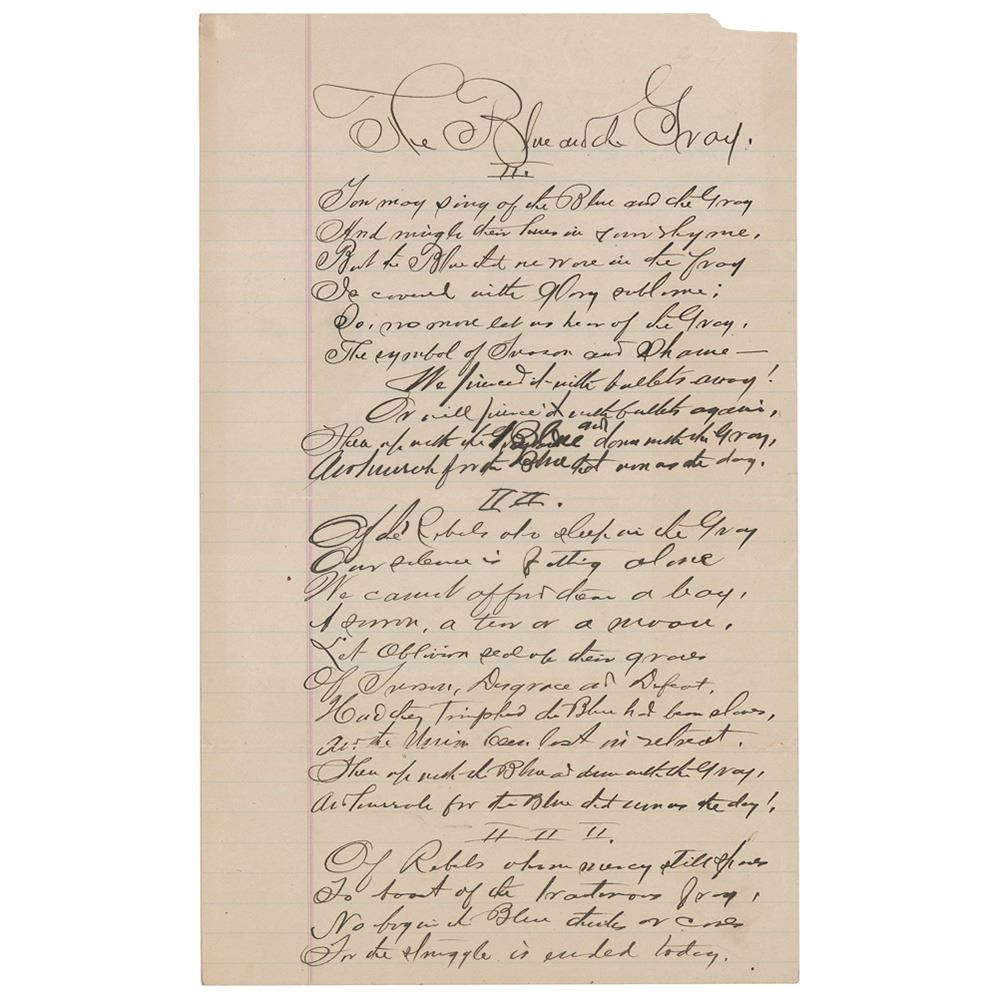 The Blue and the Gray.
II.
You may sing of the Blue and the Gray
And mingle their hues in your rhyme,
But the Blue that we wore in the fray
Is covered with glory sublime;
So, no more let us hear of the Gray,
The symbol of Treason and Shame —
We pierced it with bullets away!
Or will pierce it with bullets again,
Then up with the Blue and down with the Gray,
And hurrah for the Blue that won us the day.
II II.
Of the Rebels who sleep in the Gray
Our silence is fitting alone
We cannot afford them a bay,
A sorrow, a tear or a moan,
Let Oblivion seal up their graves
Of Treason, Disgrace and Defeat,
Had they triumphed the Blue had been slaves,
And the Union been lost in retreat.
Then up with the Blue and down with the Gray,
And hurrah for the Blue that won us the day!
II II II.
Of Rebels whom mercy still spares
To boast of the traitorous fray,
No boy in the Blue thinks or cares
For the struggle is ended today.